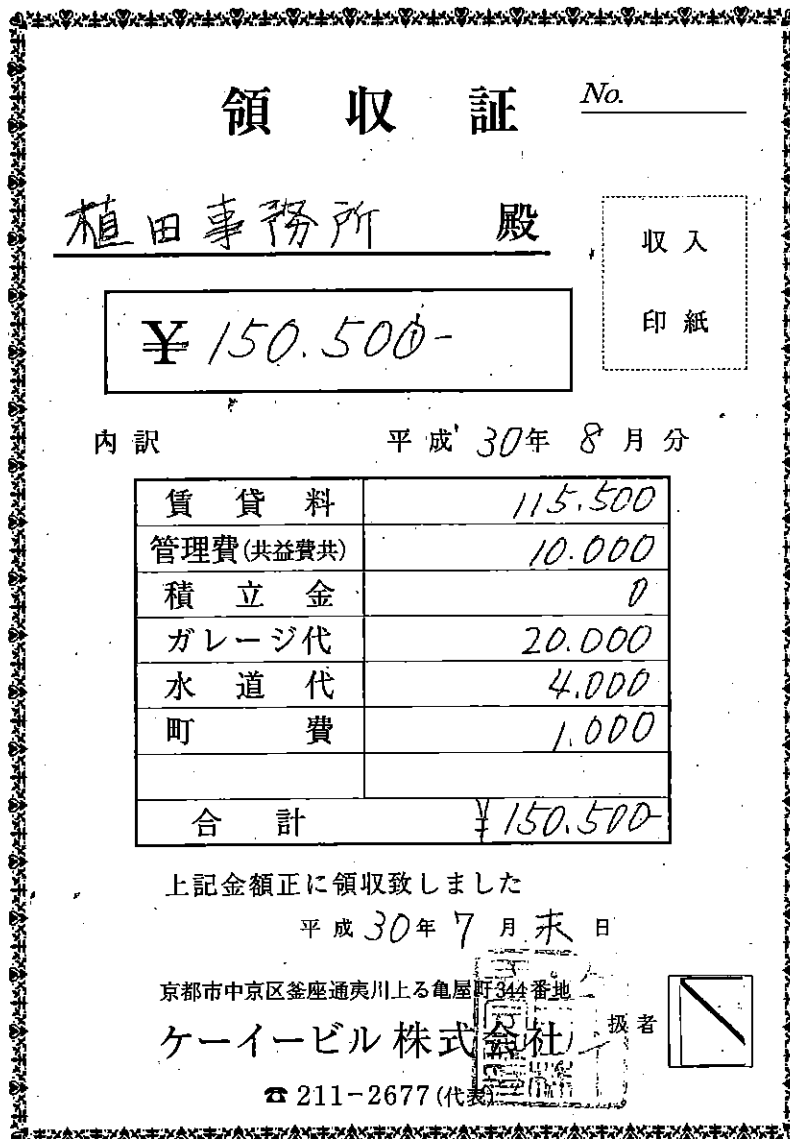 領収証 No.
植田事務所 殿
収入
印紙
¥150.500-
内訳 平成30年8月分
賃貸料 115.500
管理費(共益費共) 10.000
積立金 0
ガレージ代 20.000
水道代 4.000
町費 1.000
合計 ¥150.500-
上記金額正に領収致しました
平成30年7月末日
京都市中京区釜座通夷川上る亀屋町344番地
ケーイービル株式会社 扱者
☎211-2677(代表)